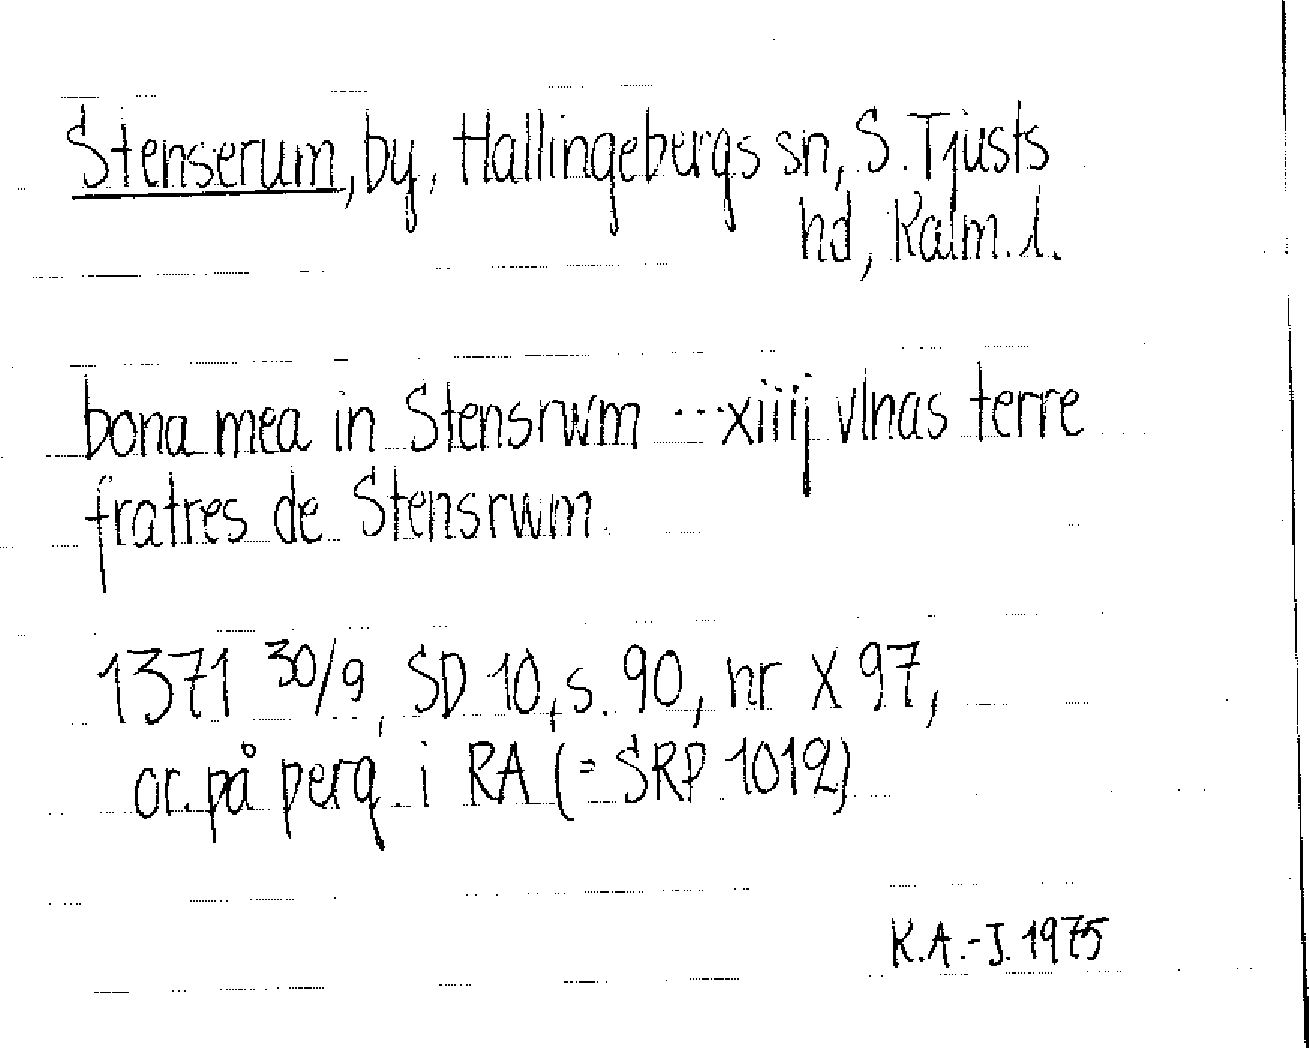 Stenserum, by, Hallingebergs sn, S. Tjusts
hd, Kalm. l.
bona mea in Stensrwm ... xiiij vlnas terre
fratres de Stensrwm
1371 30/9, SD 10, s. 90, nr X 97,
or. på perg i RA (= SRP 1012)
K.A.-J. 1975